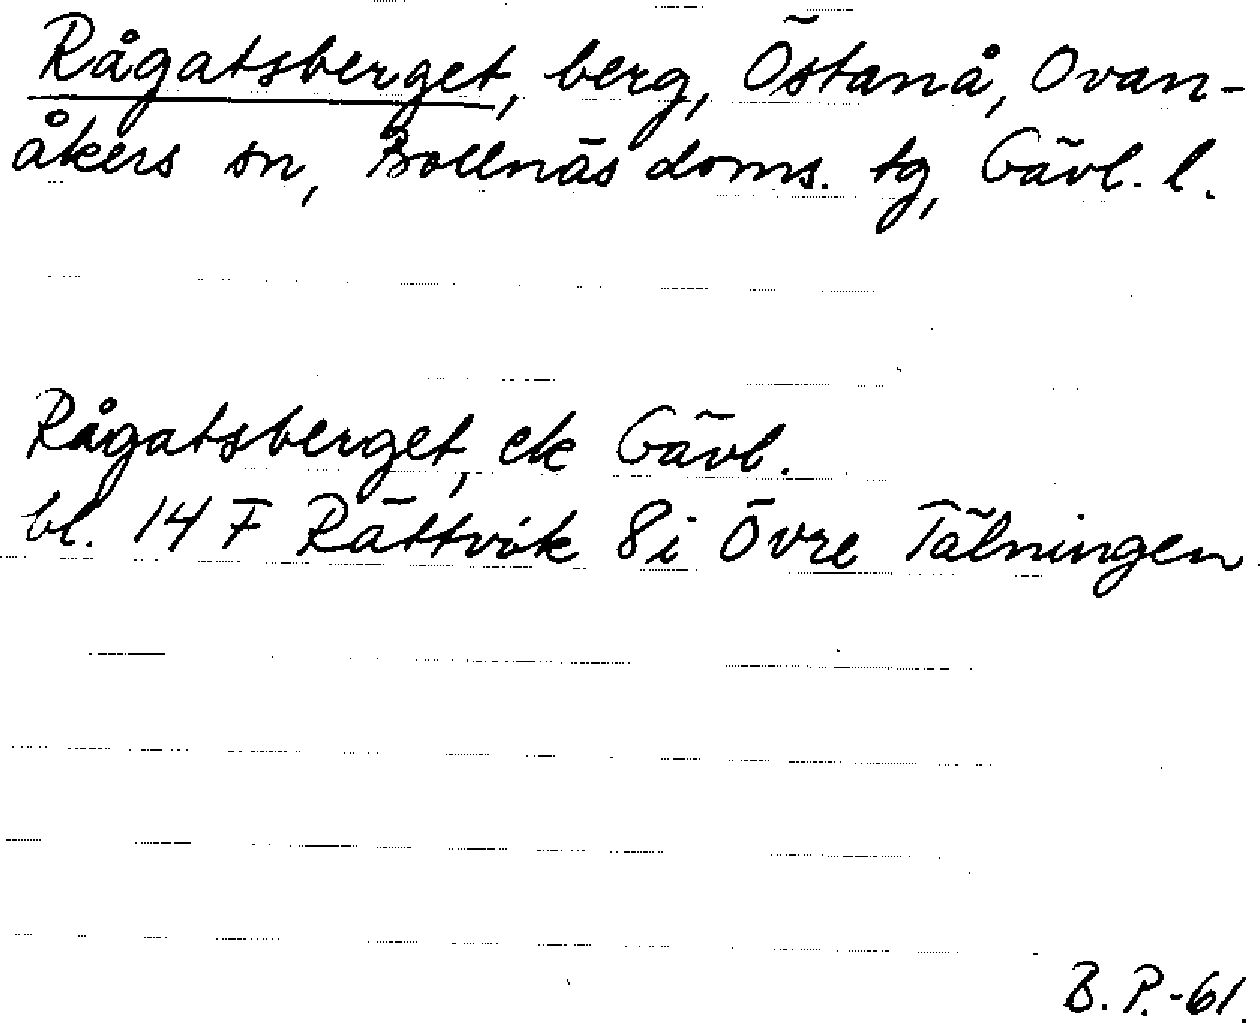 Rågatsberget, berg, Östanå, Ovan-
åkers sn, Bollnäs doms. tg, Gävl. l.
Rågatsberget, ek Gävl.
bl. 14 F Rättvik 8i Övre Tälningen.
B. P.-61.